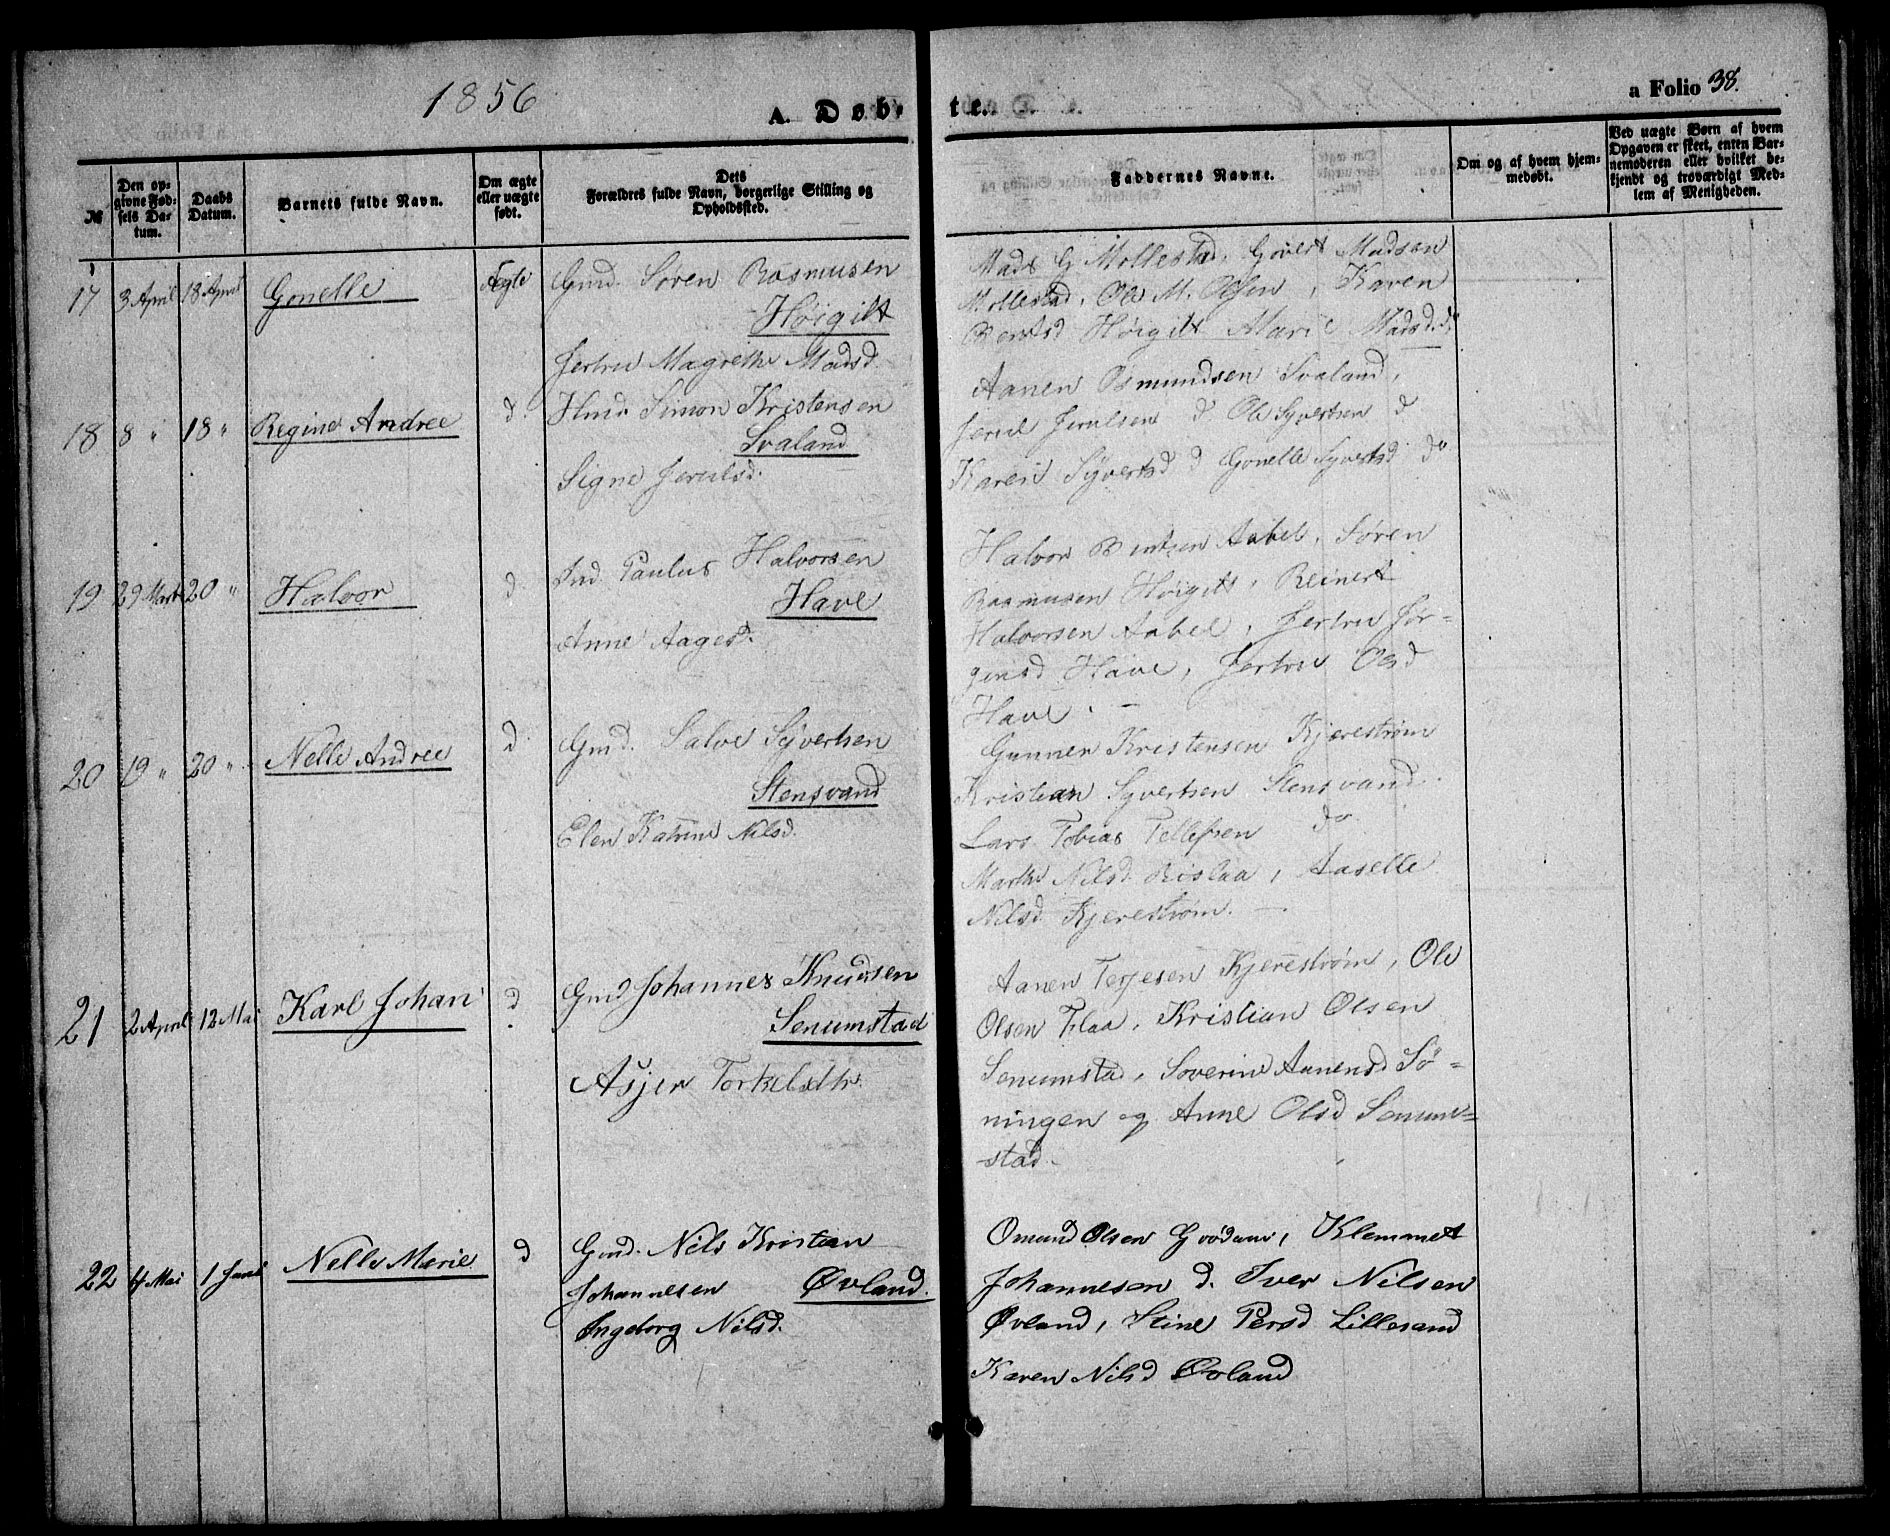 1856
A. Døbte.
a Folio 38.
№
Den opgivne Fødsels Datum.
Daabs Datum.
Barnets fulde Navn.
Om ægte eller uægte født.
Dets Forældres fulde Navn, borgerlige Stilling og Opholdssted.
Faddernes Navne.
Om og af hvem hjemmedøbt.
Ved uægte Børn af hvem Opgaven er skeet, enten Barnemoderen eller hvilket bekjendt og troværdigt Medlem af Menigheden.
17 3 April 18 April Gonelle Ægte Gmd. Søren Rasmusen
Høigilt
Jertru Magrethe Madsd.
Mads G Mollestad, Govert Madsen
Mollestad, Ole M. Olsen, Karen
Berntsd Høigilt Marie Madsd. do
18 8 " 18 " Regine Andree d Hmd. Simon Kristensen
Svaland
Signe Jerulsd.
Aanen Osmundsen Svaland,
Jerul Jerulsen d Ole Syvertsen d
Karen Syvertsd d Gonelle Syvertsd do
19 29 Marts 20 " Halvor d Ind. Paulus Halvorsen
Have
Anne Aagesd.
Halvor Berntsen Aabel, Søren
Rasmusen Høigilt, Reinert
Halvorsen Aabel, Jertru Jør-
gensd Have, Jertru Olsd
Have. —
20 19 " 20 " Nelle Andree d Gmd. Salve Syvertsen
Stensvand
Elen Katrine Nilsd.
Gunner Kristensen Kjerestrøm
Kristian Syvertsen Stensvand
Lars Tobias Tellefsen do
Marthe Nilsd. Rislaa, Aaselle
Nilsd. Kjerestrøm. —
21 2 April 12 Mai Karl Johan d. Gmd Johannes Knudsen
Senumstad
Asjer Torkelsdtr.
Aanen Terjesen Kjerestrøm, Ole
Olsen Flaa, Kristian Olsen
Senumstad, Soverine Aanensd Sø-
ningen og Anne Olsd Senum-
stad.
22 4 Mai 1 Juni Nelle Marie d Gmd. Nils Kristian
Johannesen Øvland.
Ingeborg Nilsd.
Omund Olsen Grødum, Klemmet
Johannesen d. Iver Nilsen
Øvland, Stine Persd Lillesand
Karen Nilsd Øvland